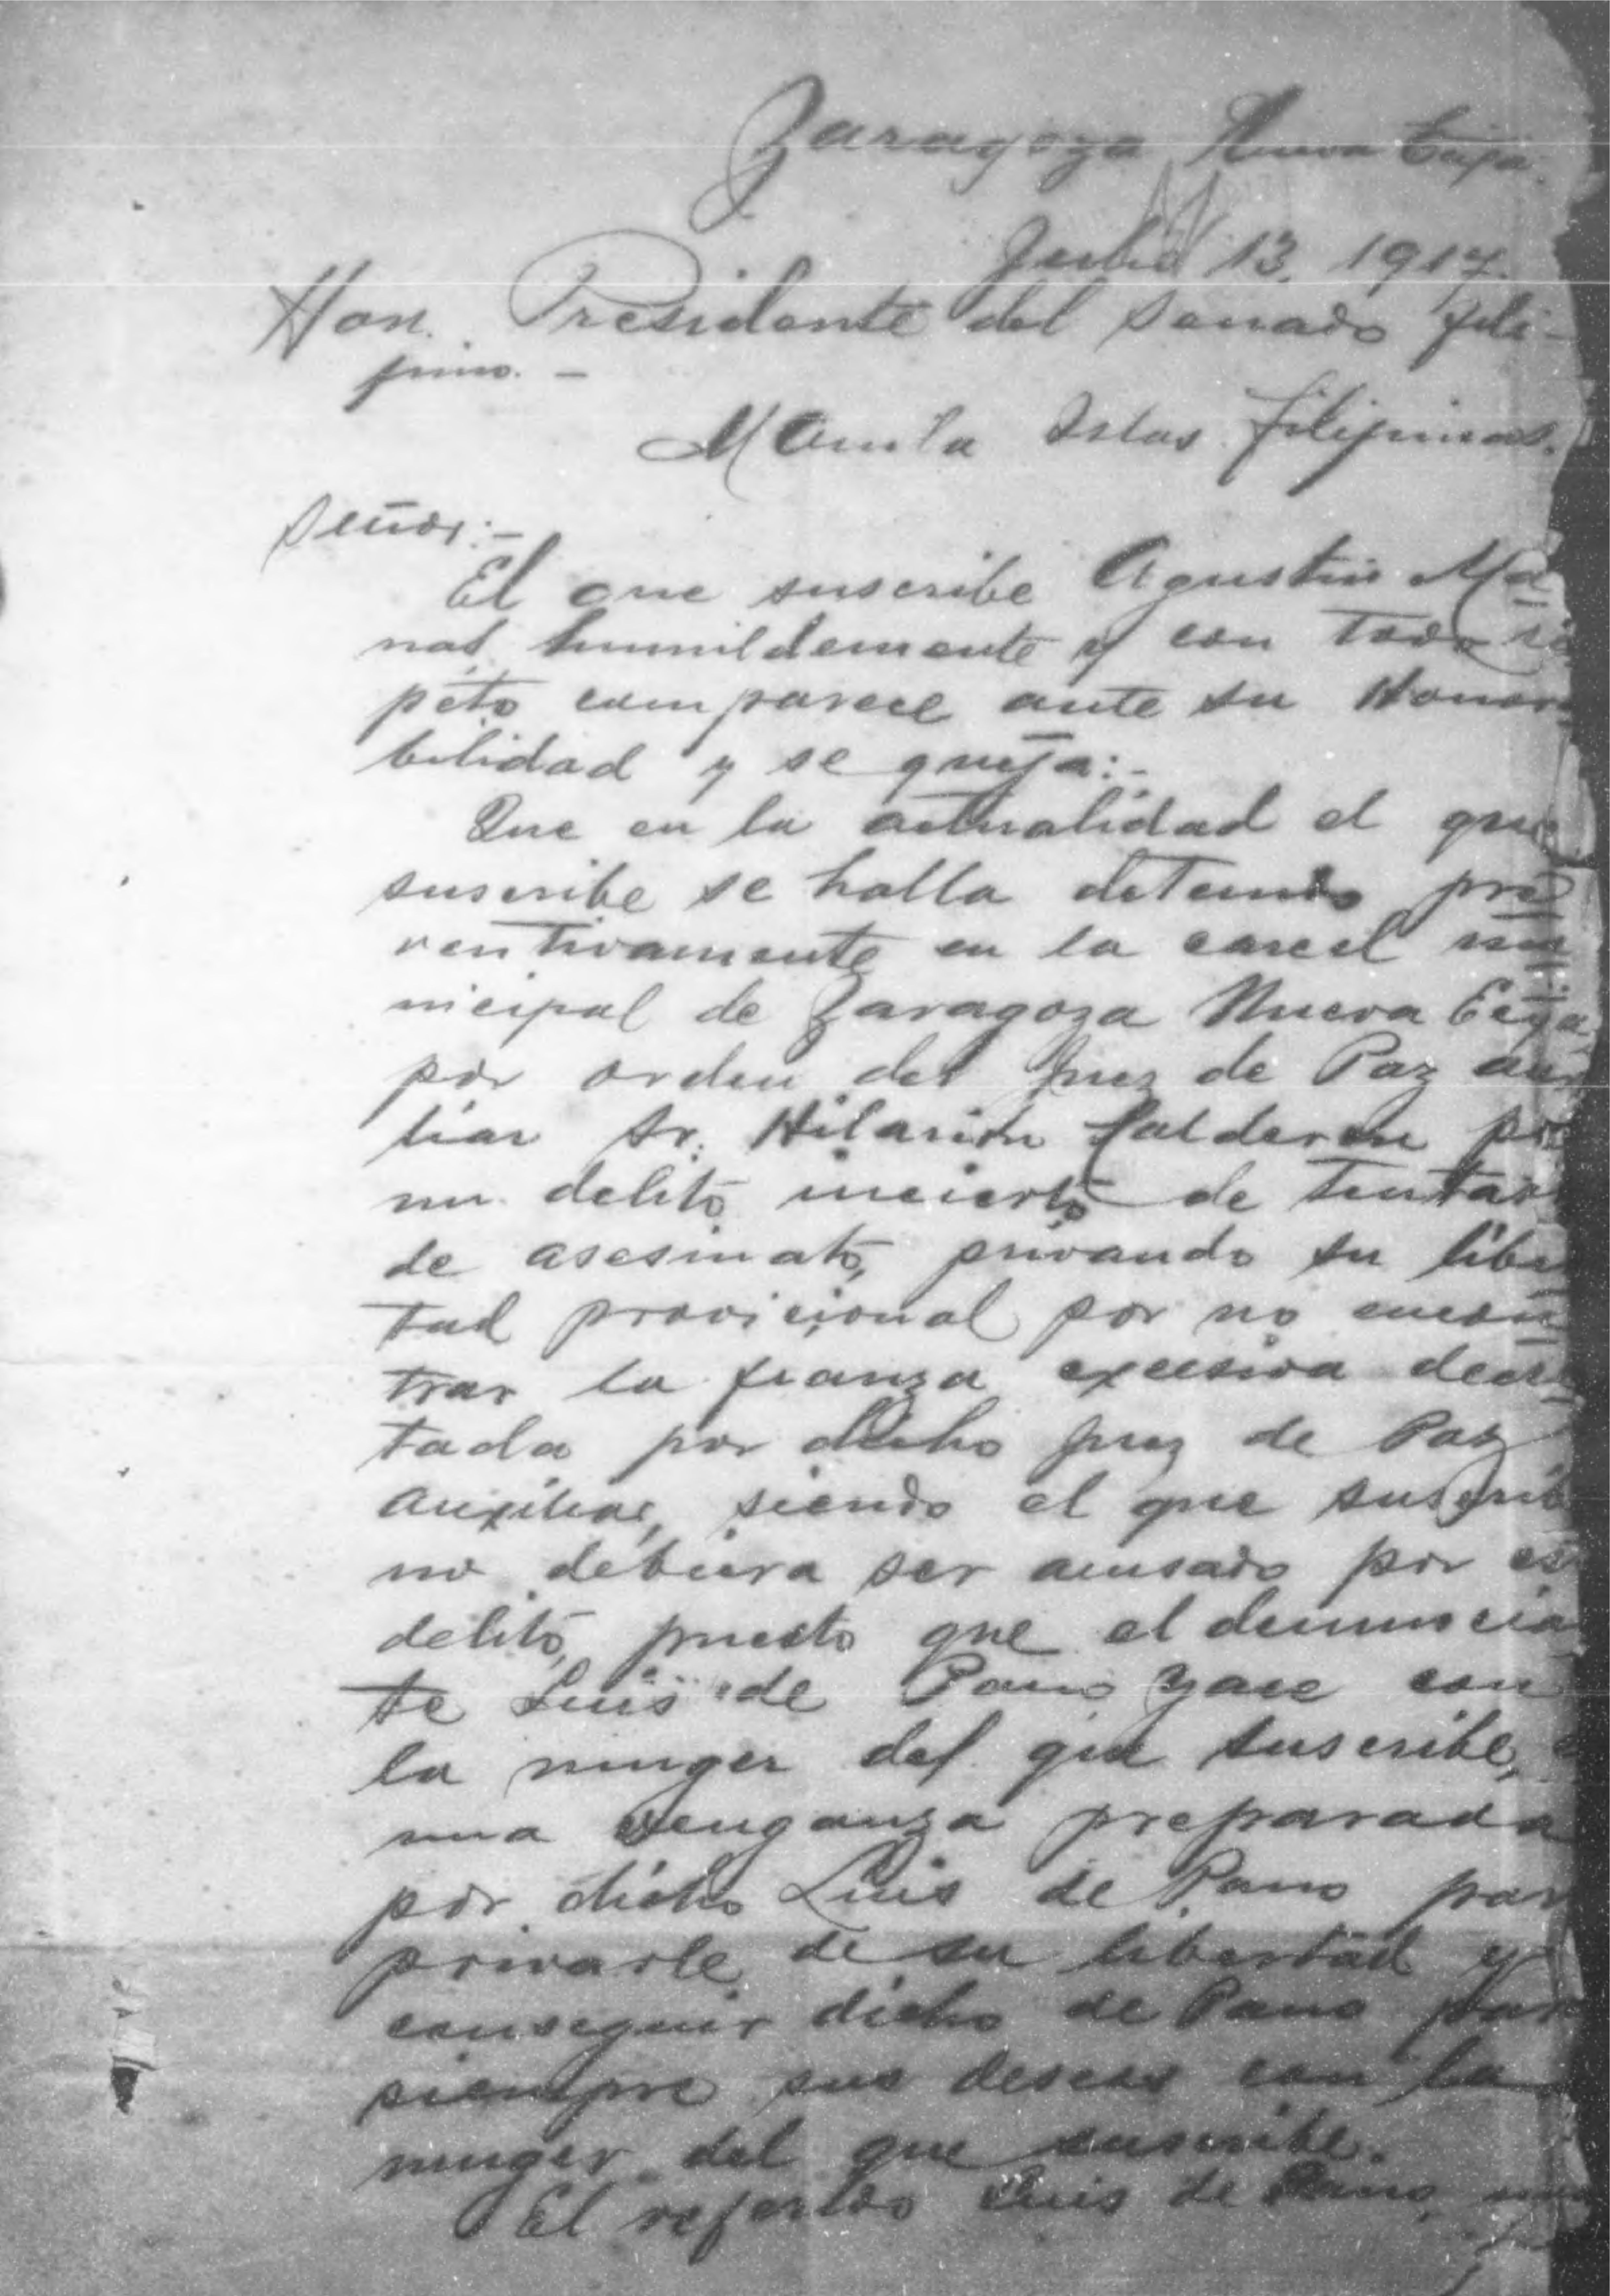 Zaragoza Nueva Ecija.
Julio 13, 1917.
Hon. Presidente del Senado fili-
pino. —
Manila Islas filipinas.
Señor:—
El que suscribe Agustin Ma-
nat humildemente y con todo res
peto comparece ante su Honora
bilidad y se queja:-
Que en la actualidad el que
suscribe se halla detenido pre
ventivamente en la carcel mu
nicipal de Zaragoza Nueva Ecija
por orden del Juez de Paz aux
liar Sr. Hilarion Calderon por
un delito incierto de
de asesinato, privando su liber
tad provicional por no encon
trar la fianza excesiva decre
tada por dicho Juez de Paz
auxiliar, siendo el que suscribe
no debiera ser acusado por es
delito, puesto que el denuncia
te Luis de Pano yace con
la muger del que suscribe,
una venganza preparada
por dicho Luis de Pano para
privarle de su libertad y
conseguir dicho de Pano para
siempre sus deseos con la
muger del que suscribe.
El referido Luis de Pano,